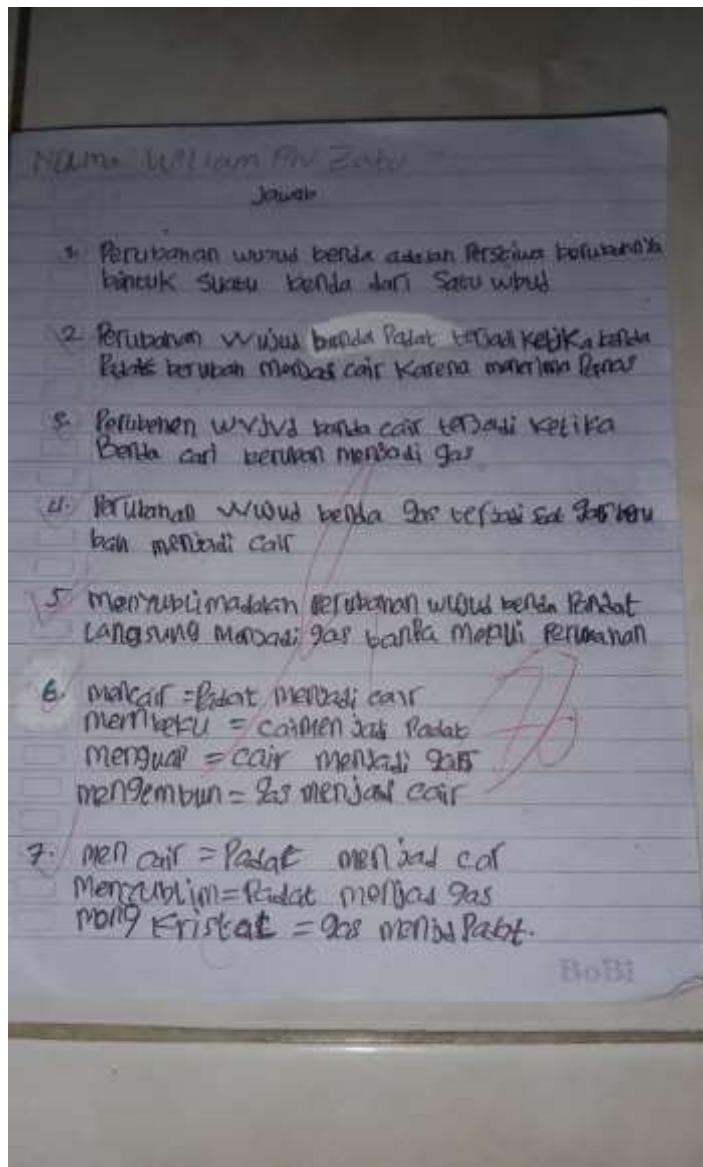 Nama William
Jawab
1. Perubahan wujud benda adalah Perstiwa berubahnya
bentuk suatu benda dari Satu wbud
2. Perubahan wujud benda Padat terjadi ketika benda
Padat berubah menjadi cair Karena menerima Panas
3. Perubahan wujud benda cair terjadi ketika
Benda cari berubah menjadi gas
4. Perubahan wujud benda gas terjadi saat gas beru
bah menjadi cair
5. menyublim adalah perubahan wujud benda Pandat
Langsung menjadi gas tanpa perubahan
6. mencair = Padat menjadi cair
membeku = cair menjadi Padat
menguap = cair menjadi gas
mengembun = gas menjadi cair
7. men cair = Padat menjad car
Menyublim = Padat menjad gas
meng Kristal = gas Padat.
BoBi